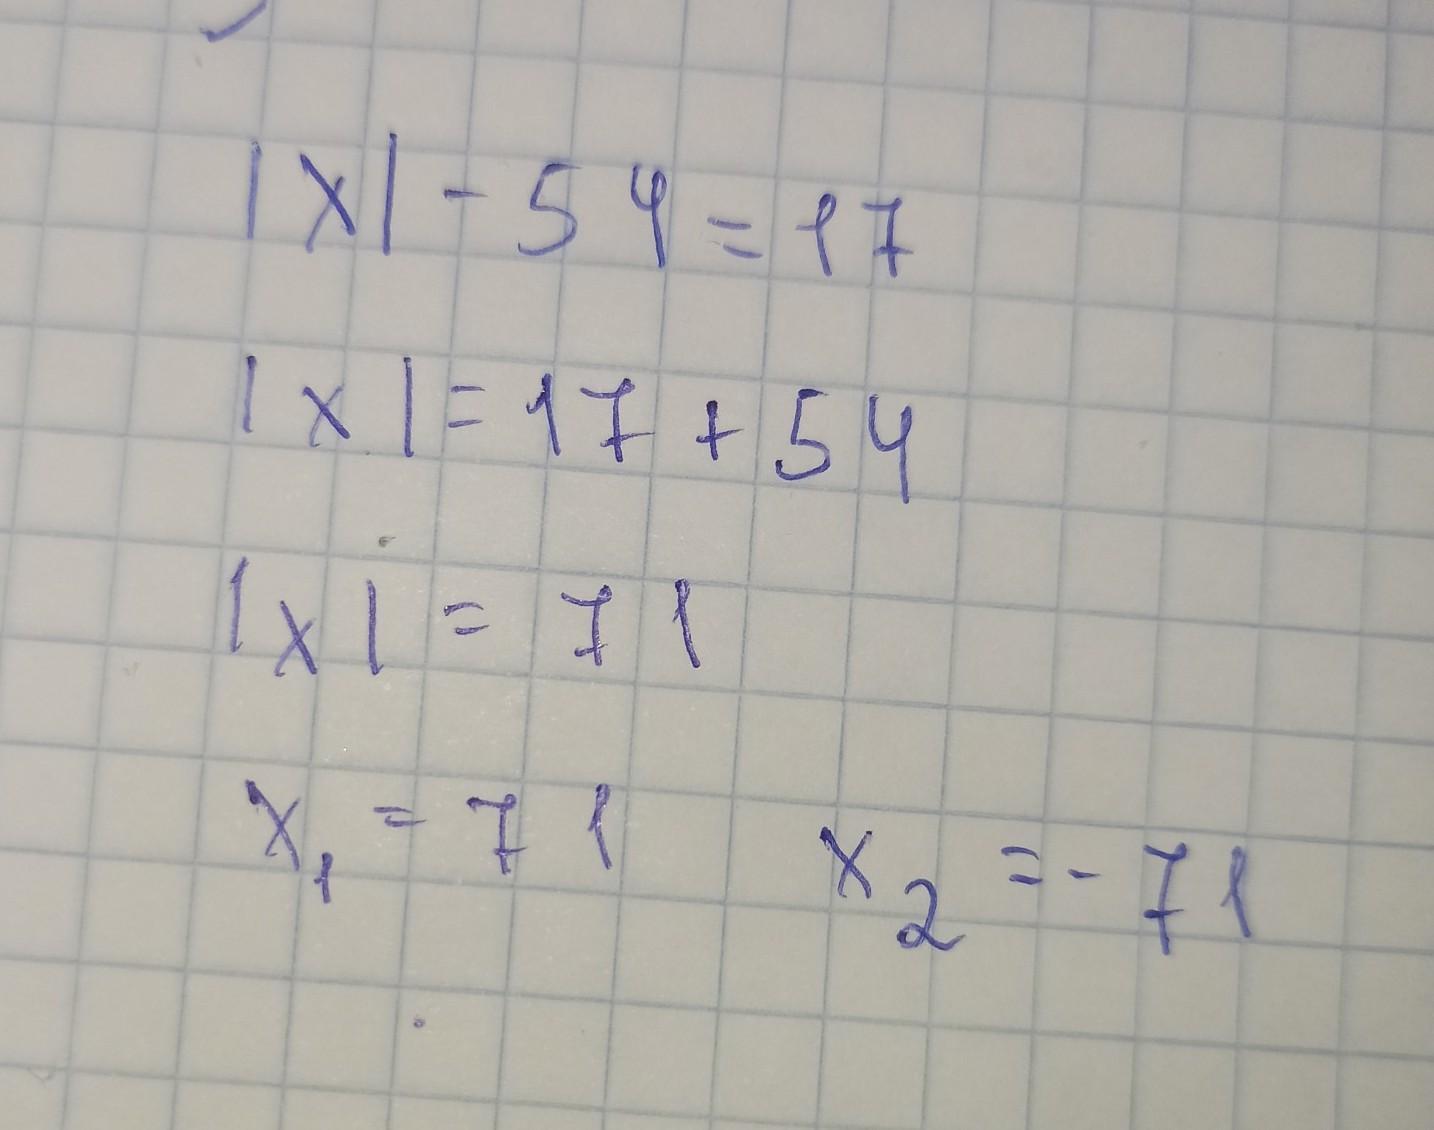 |x| - 54 = 17
|x| = 17 + 54
|x| = 71
x₁ = 71 x₂ = - 71